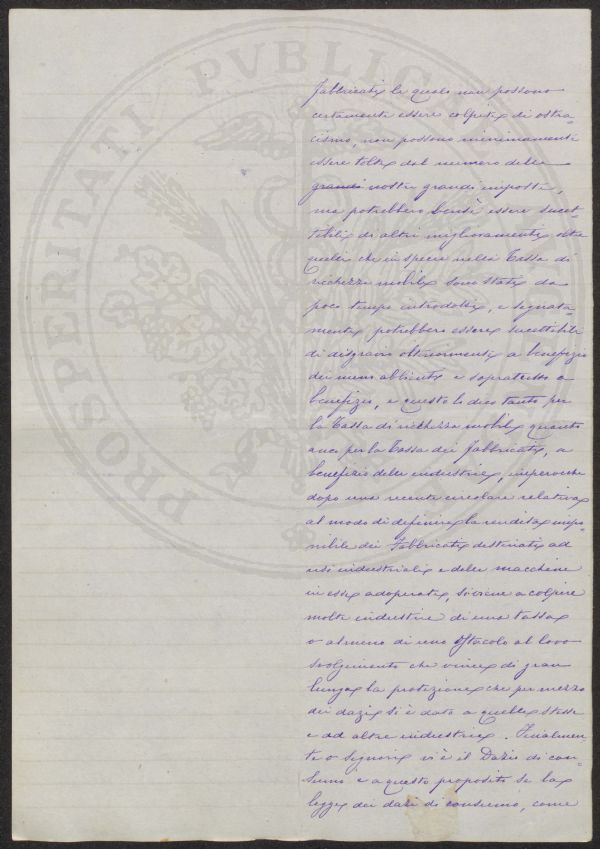 PROSPERITATI PVBLICAE
fabbricati le quali non possono
certamente essere colpite di ostra-
cismo, non possono menomamente
essere tolte dal numero delle
grandi nostre grandi imposte,
ma potrebbero bensì essere suscet-
tibili di altri miglioramenti oltre
quelli che in specie nella Tassa di
ricchezza mobile sono state da
poco tempo introdotte, e segnata-
mente potrebbero essere suscettibili
di disgravio ulteriormente a benefizio
dei meno abbienti e sopratutto a
benefizio, e questo lo dico tanto per
la Tassa di ricchezza mobile quanto
anco per la Tassa dei fabbricati, a
benefizio delle industrie, imperocche
dopo una recente circolare relativa
al modo di definire la rendita impo-
nibile dei Fabbricati destinati ad
usi industriali e delle macchine
in essi adoperate, si viene a colpire
molte industrie di una tassa
o almeno di uno ostacolo al loro
svolgimento che vince di gran
lunga la protezione che per mezzo
dei dazi si è dato a quelle stesse
e ad altre industrie. Finalmen-
te o Signori vi è il Dazio di con-
sumo e a questo proposito se la
legge dei dazi di consumo, come